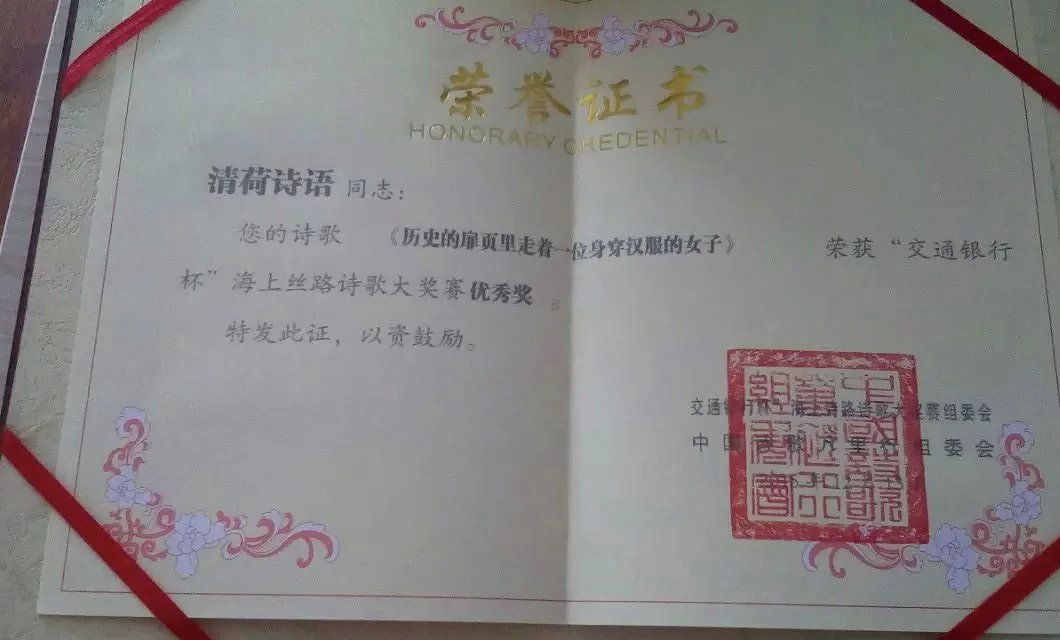 荣誉证书
HONORARY CREDENTIAL
清荷诗语 同志：
您的诗歌 《历史的扉页里走着一位身穿汉服的女子》 荣获“交通银行
杯”海上丝路诗歌大奖赛优秀奖。
特发此证，以资鼓励。
交通银行杯”海上诗路诗歌大奖赛组委会
中国诗歌万里行组委会